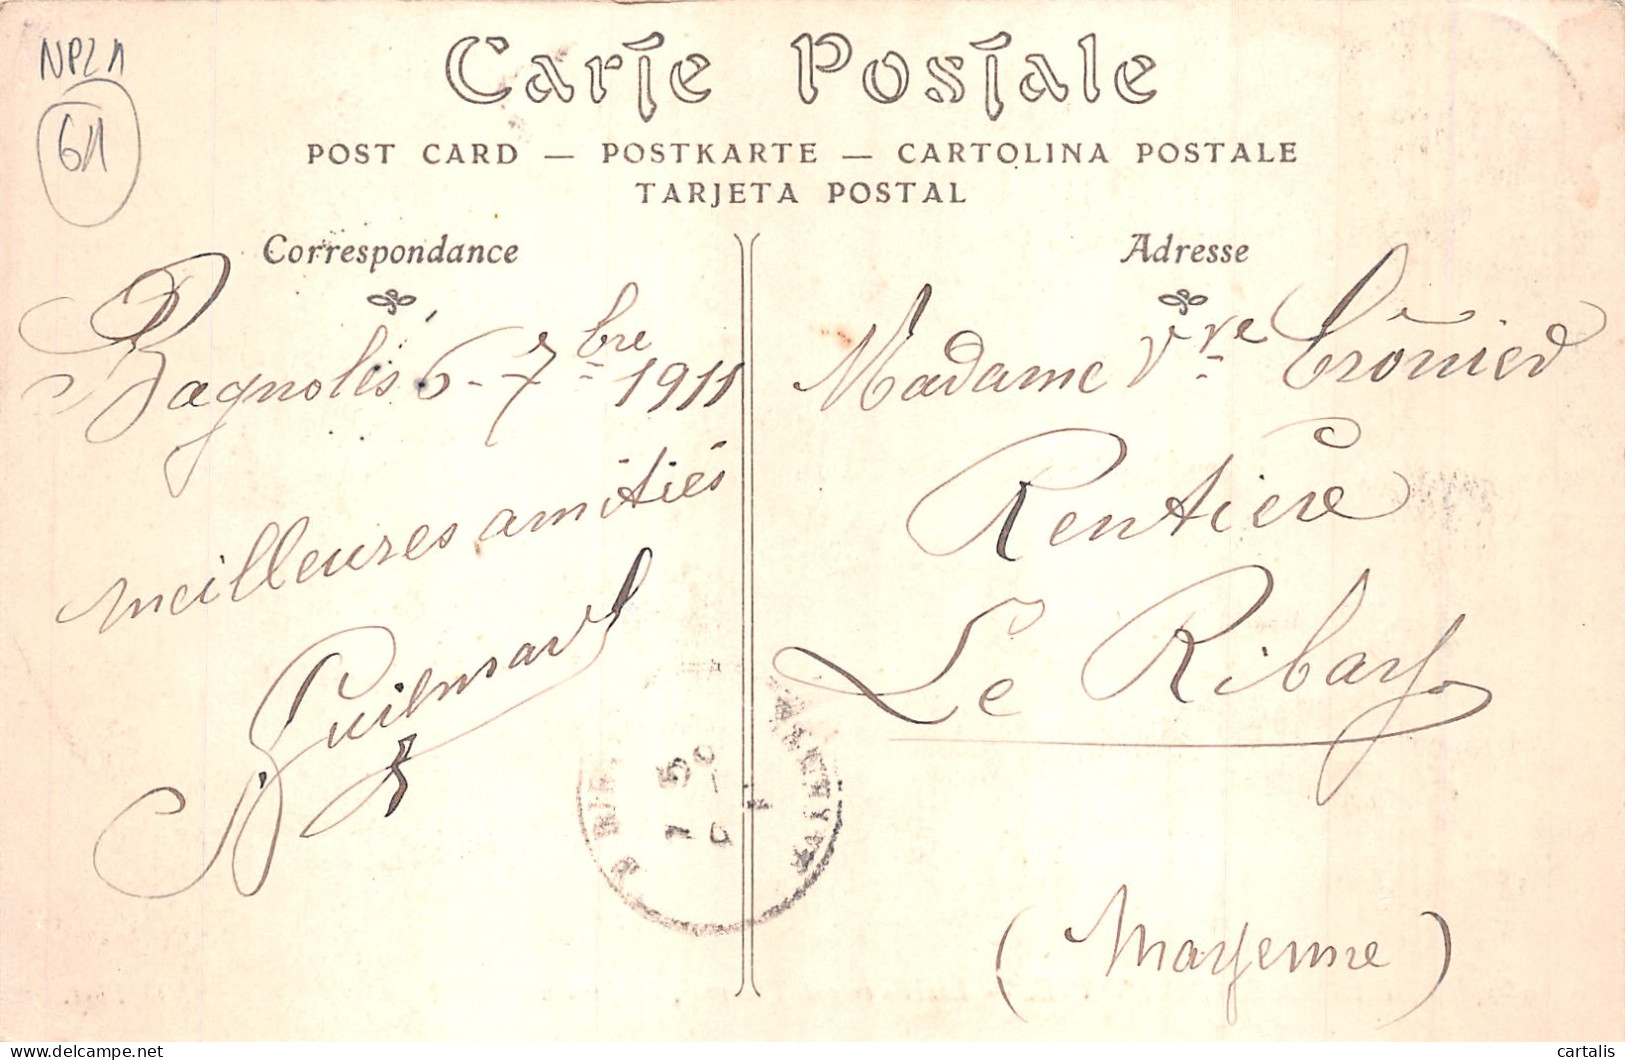 NPZ1
61
Carte Postale
POST CARD — POSTKARTE — CARTOLINA POSTALE
TARJETA POSTAL
Correspondance
Bagnoles 6-7bre 1911
meilleures amitiés
Adresse
Madame Vve
Rentière
Le Ribay
(Mayenne)
cartalis